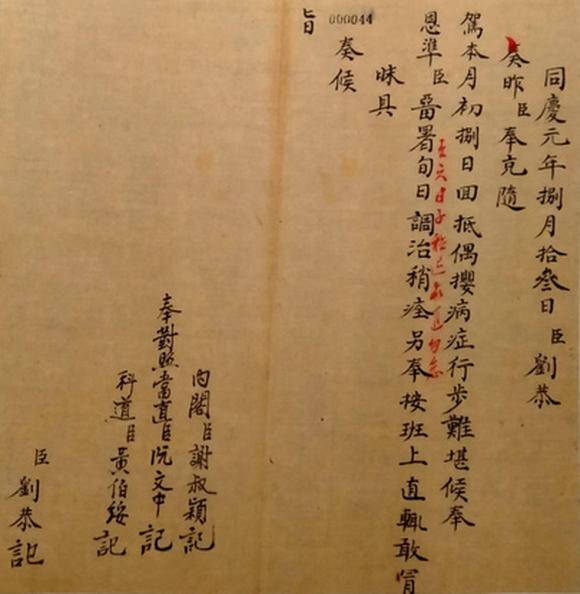 同慶元年捌月拾叁日臣劉恭
奏昨臣奉克隨
駕本月初捌日回抵偶攖病症行步難堪候奉
五六日
恩準臣畱署旬日調治稍痊另奉接班上直輒敢冐
昧具
奏候
000044
旨
內閣臣謝叔穎記
奉對照當直臣阮文中記
科道臣黃伯綏記
臣劉恭記